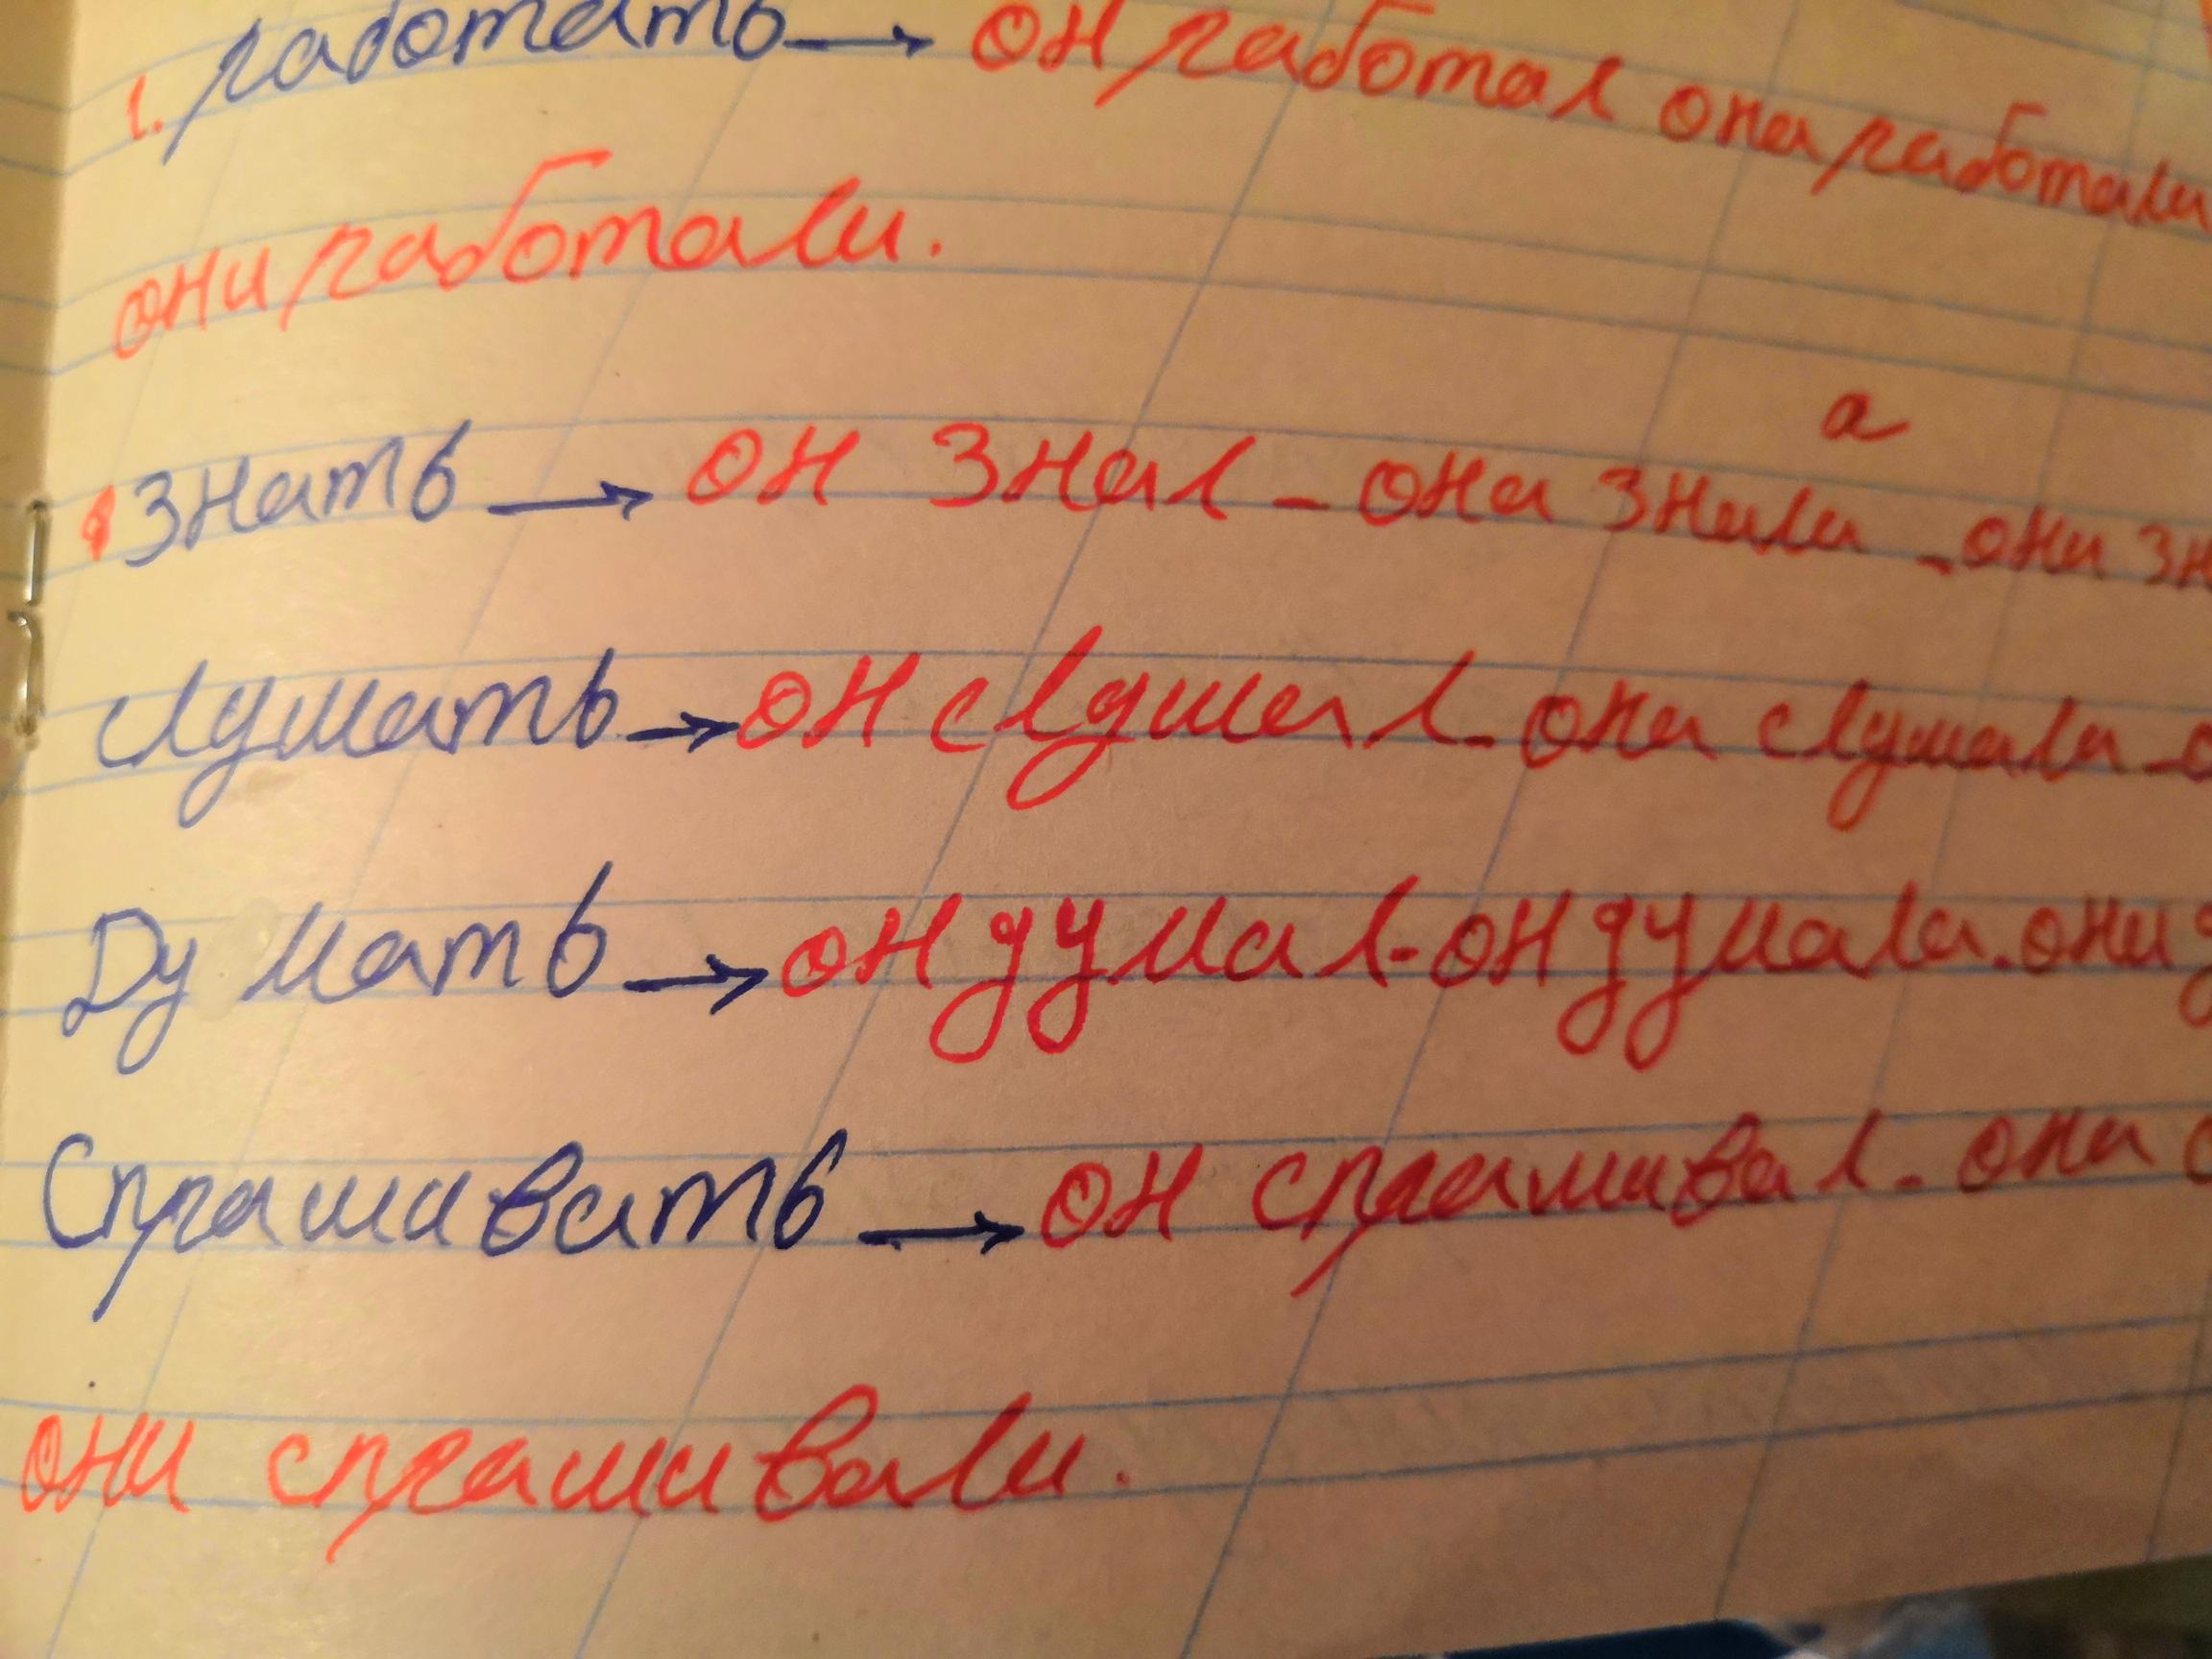 1. работать → он работал она работали
они работали.
знать → он знал - она знали а - они зн
слушать → он слушал - она слушала -
Думать → он думал - он думала. они д
Спрашивать → он спрашивал - она с
они спрашивали.